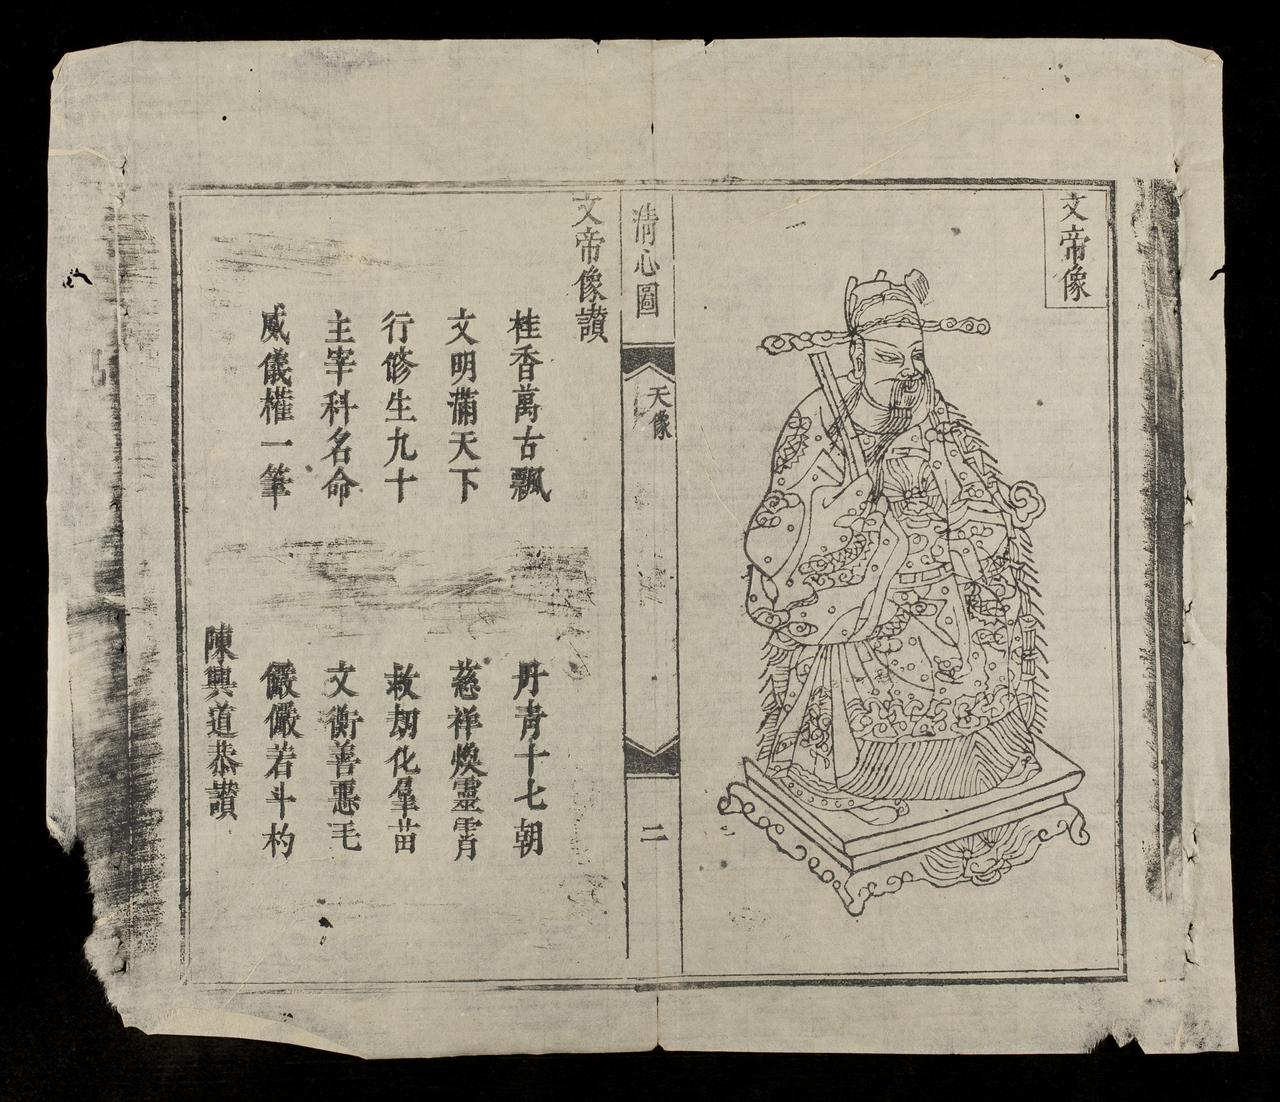 文帝像
清心圖
天像
二
文帝像讃
桂香萬古飄 丹青十七朝
文明滿天下 慈祥煥靈霄
行修生九十 救劫化羣苗
主宰科名命 文衡善惡毛
威儀權一筆 儼儼若斗杓
陳興道恭讃